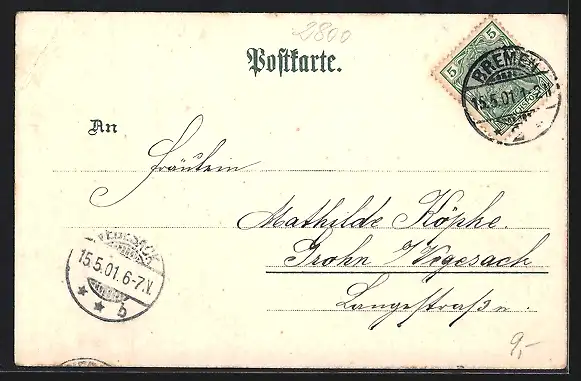 2800
Postkarte.
5 5
BREMEN
15.5.01. 1-2 N
2
An
Fräulein
Mathilde Köpke.
Grohn / Vegesack
Langestraße.
VEGESACK
15.5.01. 6-7.V.
b
9,-